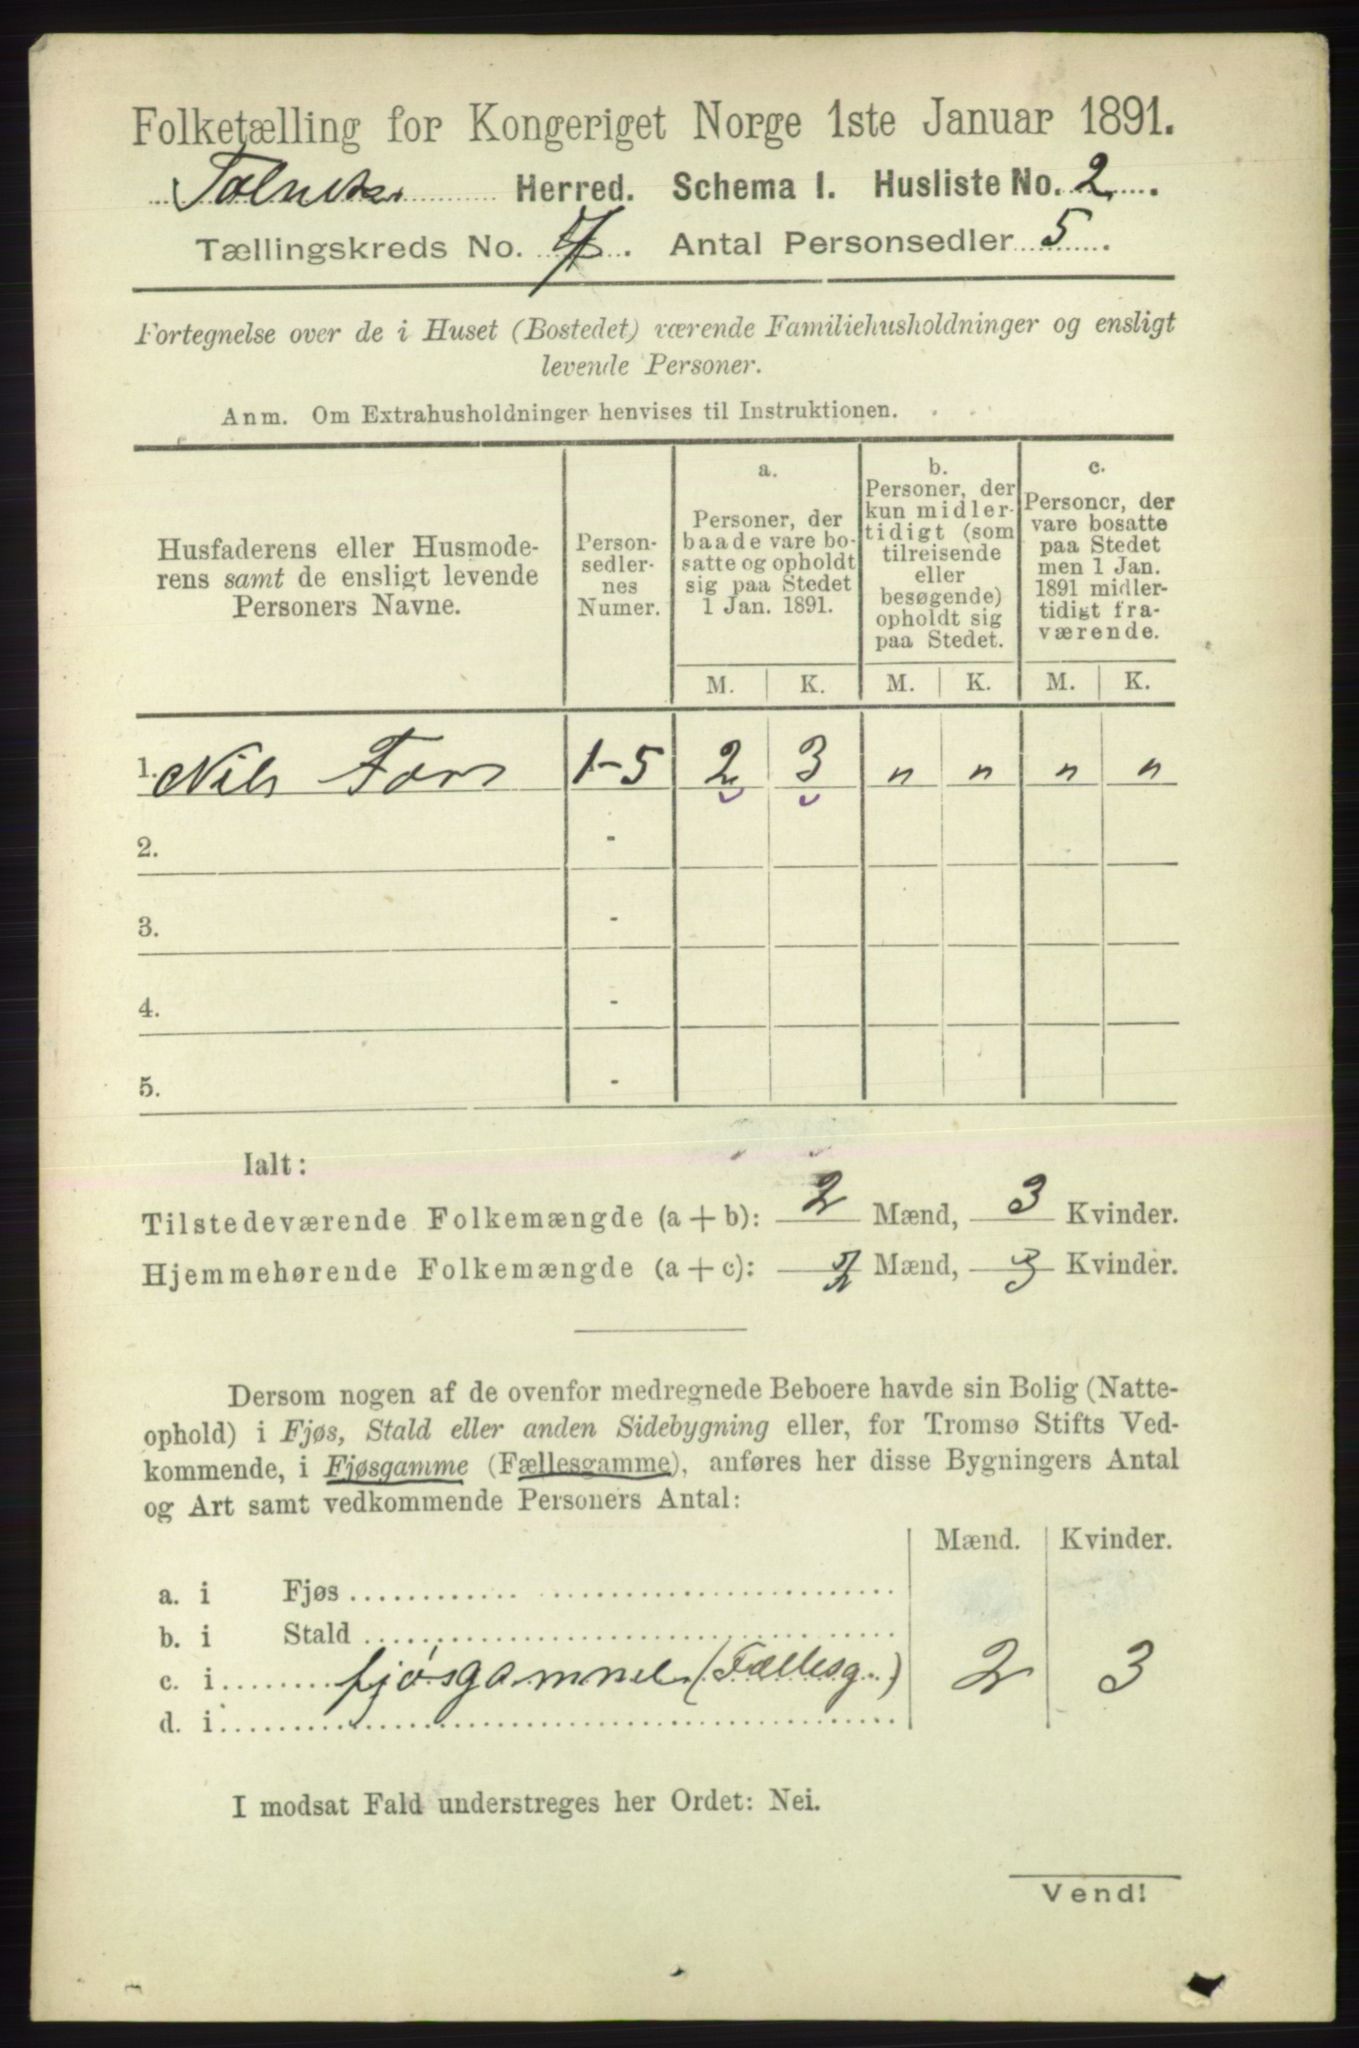 Folketælling for Kongeriget Norge 1ste Januar 1891.
Herred. Schema I. Husliste No. 2.
Tællingskreds No. 4. Antal Personsedler 5.
Fortegnelse over de i Huset (Bostedet) værende Familiehusholdninger og ensligt
levende Personer.
Anm. Om Extrahusholdninger henvises til Instruktionen.
Husfaderens eller Husmode-
rens samt de ensligt levende
Personers Navne.
Person-
sedler-
nes
Numer.
a.
Personer, der
baade vare bo-
satte og opholdt
sig paa Stedet
1 Jan. 1891.
b.
Personer, der
kun midler-
tidigt (som
tilreisende
eller
besøgende)
opholdt sig
paa Stedet.
c.
Personer, der
vare bosatte
paa Stedet
men 1 Jan.
1891 midler-
tidigt fra-
værende.
M. K. M. K. M. K.
1. Nils Fors 1-5 2 3 " " " "
2. -
3. -
4. -
5. -
Ialt:
Tilstedeværende Folkemængde (a + b): 2 Mænd, 3 Kvinder.
Hjemmehørende Folkemængde (a + c): 2 Mænd, 3 Kvinder.
Dersom nogen af de ovenfor medregnede Beboere havde sin Bolig (Natte-
ophold) i Fjøs, Stald eller anden Sidebygning eller, for Tromsø Stifts Ved-
kommende, i Fjøsgamme (Fællesgamme), anføres her disse Bygningers Antal
og Art samt vedkommende Personers Antal:
Mænd. Kvinder.
a. i Fjøs
b. i Stald
c. i fjøsgamme (Fællesg.) 2 3
d. i
I modsat Fald understreges her Ordet: Nei.
Vend!